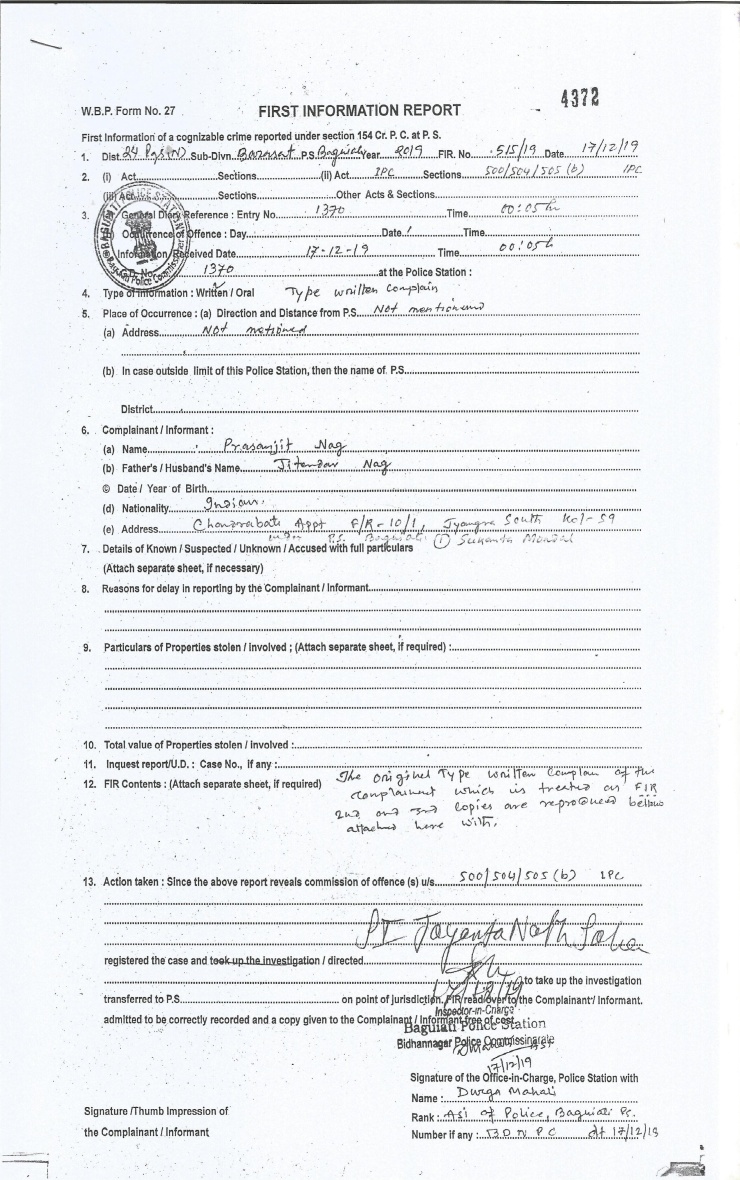 4372
W.B.P. Form No. 27 FIRST INFORMATION REPORT
First Information of a cognizable crime reported under section 154 Cr. P. C. at P. S.
1. Dist. 24 Pgs(N) Sub-Divn. Barasat P.S. Baguiati Year 2019 FIR. No. 515/19 Date 17/12/19
2. (i) Act Sections (ii) Act IPC Sections 500/504/505 (b) IPC
(iii) Act Sections Other Acts & Sections
3. General Diary Reference : Entry No. 1370 Time 00:05h
Occurrence of Offence : Day Date Time
Information Received Date 17-12-19 Time 00:05h
G.D. No. 1370 at the Police Station :
4. Type of Information : Written / Oral Type written Complain
5. Place of Occurrence : (a) Direction and Distance from P.S. Not mentioned
(a) Address Not metioned
(b) In case outside limit of this Police Station, then the name of P.S.
District
6. Complainant / Informant :
(a) Name Prasanjit Nag
(b) Father's / Husband's Name Jitendar Nag
© Date / Year of Birth
(d) Nationality Indian.
(e) Address Chandrabati Appt F/R-10/1, Jyangra South Kol-59
P.S. Baguiati
7. Details of Known / Suspected / Unknown / Accused with full particulars ① Sukanta Mondal
(Attach separate sheet, if necessary)
8. Reasons for delay in reporting by the Complainant / Informant
9. Particulars of Properties stolen / involved ; (Attach separate sheet, if required) :
10. Total value of Properties stolen / involved :
11. Inquest report/U.D. : Case No., if any :
12. FIR Contents : (Attach separate sheet, if required) The original Type written Complain of the
complainant which is treated as FIR
2nd and 3rd copies are reproduced bellow
attached here with.
13. Action taken : Since the above report reveals commission of offence (s) u/s. 500/504/505 (b) IPC
PI Jayanta Nath Saha
registered the case and took up the investigation / directed
to take up the investigation
transferred to P.S. on point of jurisdiction. FIR read over to the Complainant / Informant.
17/12/19
admitted to be correctly recorded and a copy given to the Complainant / Informant free of cost.
Inspector-in-Charge
Baguiati Police Station
Bidhannagar Police Commissinarate
17/12/19
Signature of the Office-in-Charge, Police Station with
Name : Durga Mahali
Signature /Thumb Impression of
the Complainant / Informant
Rank : ASI of Police, Baguiati Ps.
Number if any : BDN PC dt 17/12/19